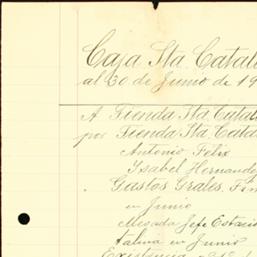 Caja Sta Catal
al 30 de Junio de 19
A Tienda Sta Catal
por Tienda Sta Cata
Antonio Felix
Ysabel Hernande
Gastos Grales. Fin
en Junio
Jefe Estacio
en Junio
Existencia